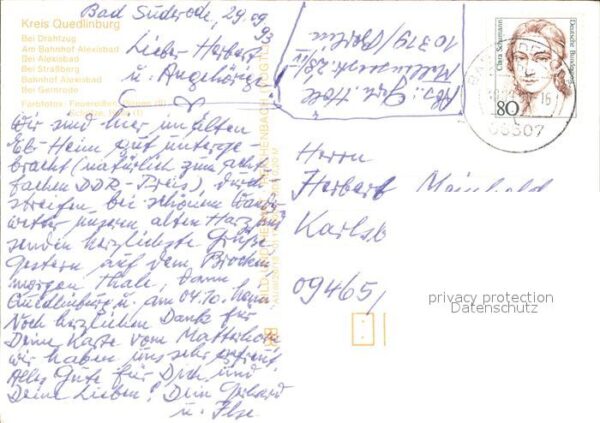 Bad Suderode, 29.09.
93
Kreis Quedlinburg
Bei Drahtzug
Am Bahnhof Alexisbad
Bei Alexisbad
Bei Straßberg
Bahnhof Alexisbad
Bei Gernrode
Lieber Herbert
u. Angehörige
Wir sind hier im alten
Heim gut unterge
bracht (natürlich zum acht
fachen DDR-Preis), durch
streifen bei schönem Wander
wetter unseren alten Harz und
senden herzlichste Grüße
Gestern auf dem Brocken
morgen Thale, dann
Quedlinburg u. am 04.10. heim
Noch herzlichen Dank für
Deine Karte vom Matterhorn
wir haben uns sehr gefreut.
Alles Gute für Dich und
Deine Lieben! Dein Gerhard
u. Ilse
Abs.: Gerh.
10319 Berlin
Clara Schumann
Deutsche Bundespost
80
Herrn
Herbert
Karlsb
09465/
privacy protection
Datenschutz